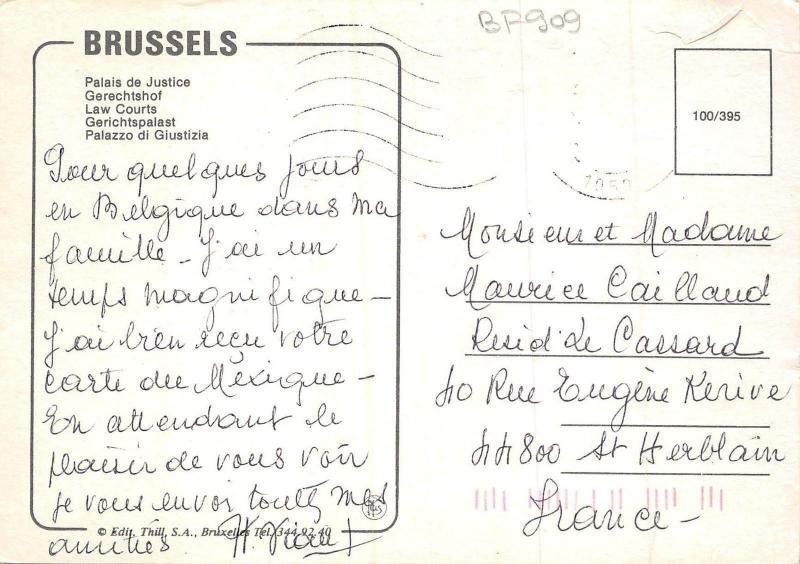 BF909
BRUSSELS
Palais de Justice
Gerechtshof
Law Courts
Gerichtspalast
Palazzo di Giustizia
100/395
Pour quelques jours
en Belgique dans ma
famille - J'ai un
temps magnifique -
J'ai bien reçu votre
carte du Méxique -
En attendant le
plaisir de vous voir
je vous envoi toutes mes
amitiés H.
© Edit. Thill, S.A., Bruxelles Tel. 344.92.40
Monsieur et Madame
Maurice Cailland
Resid. de Cassard
40 Rue Eugène Kerive
44800 St Herblain
France -